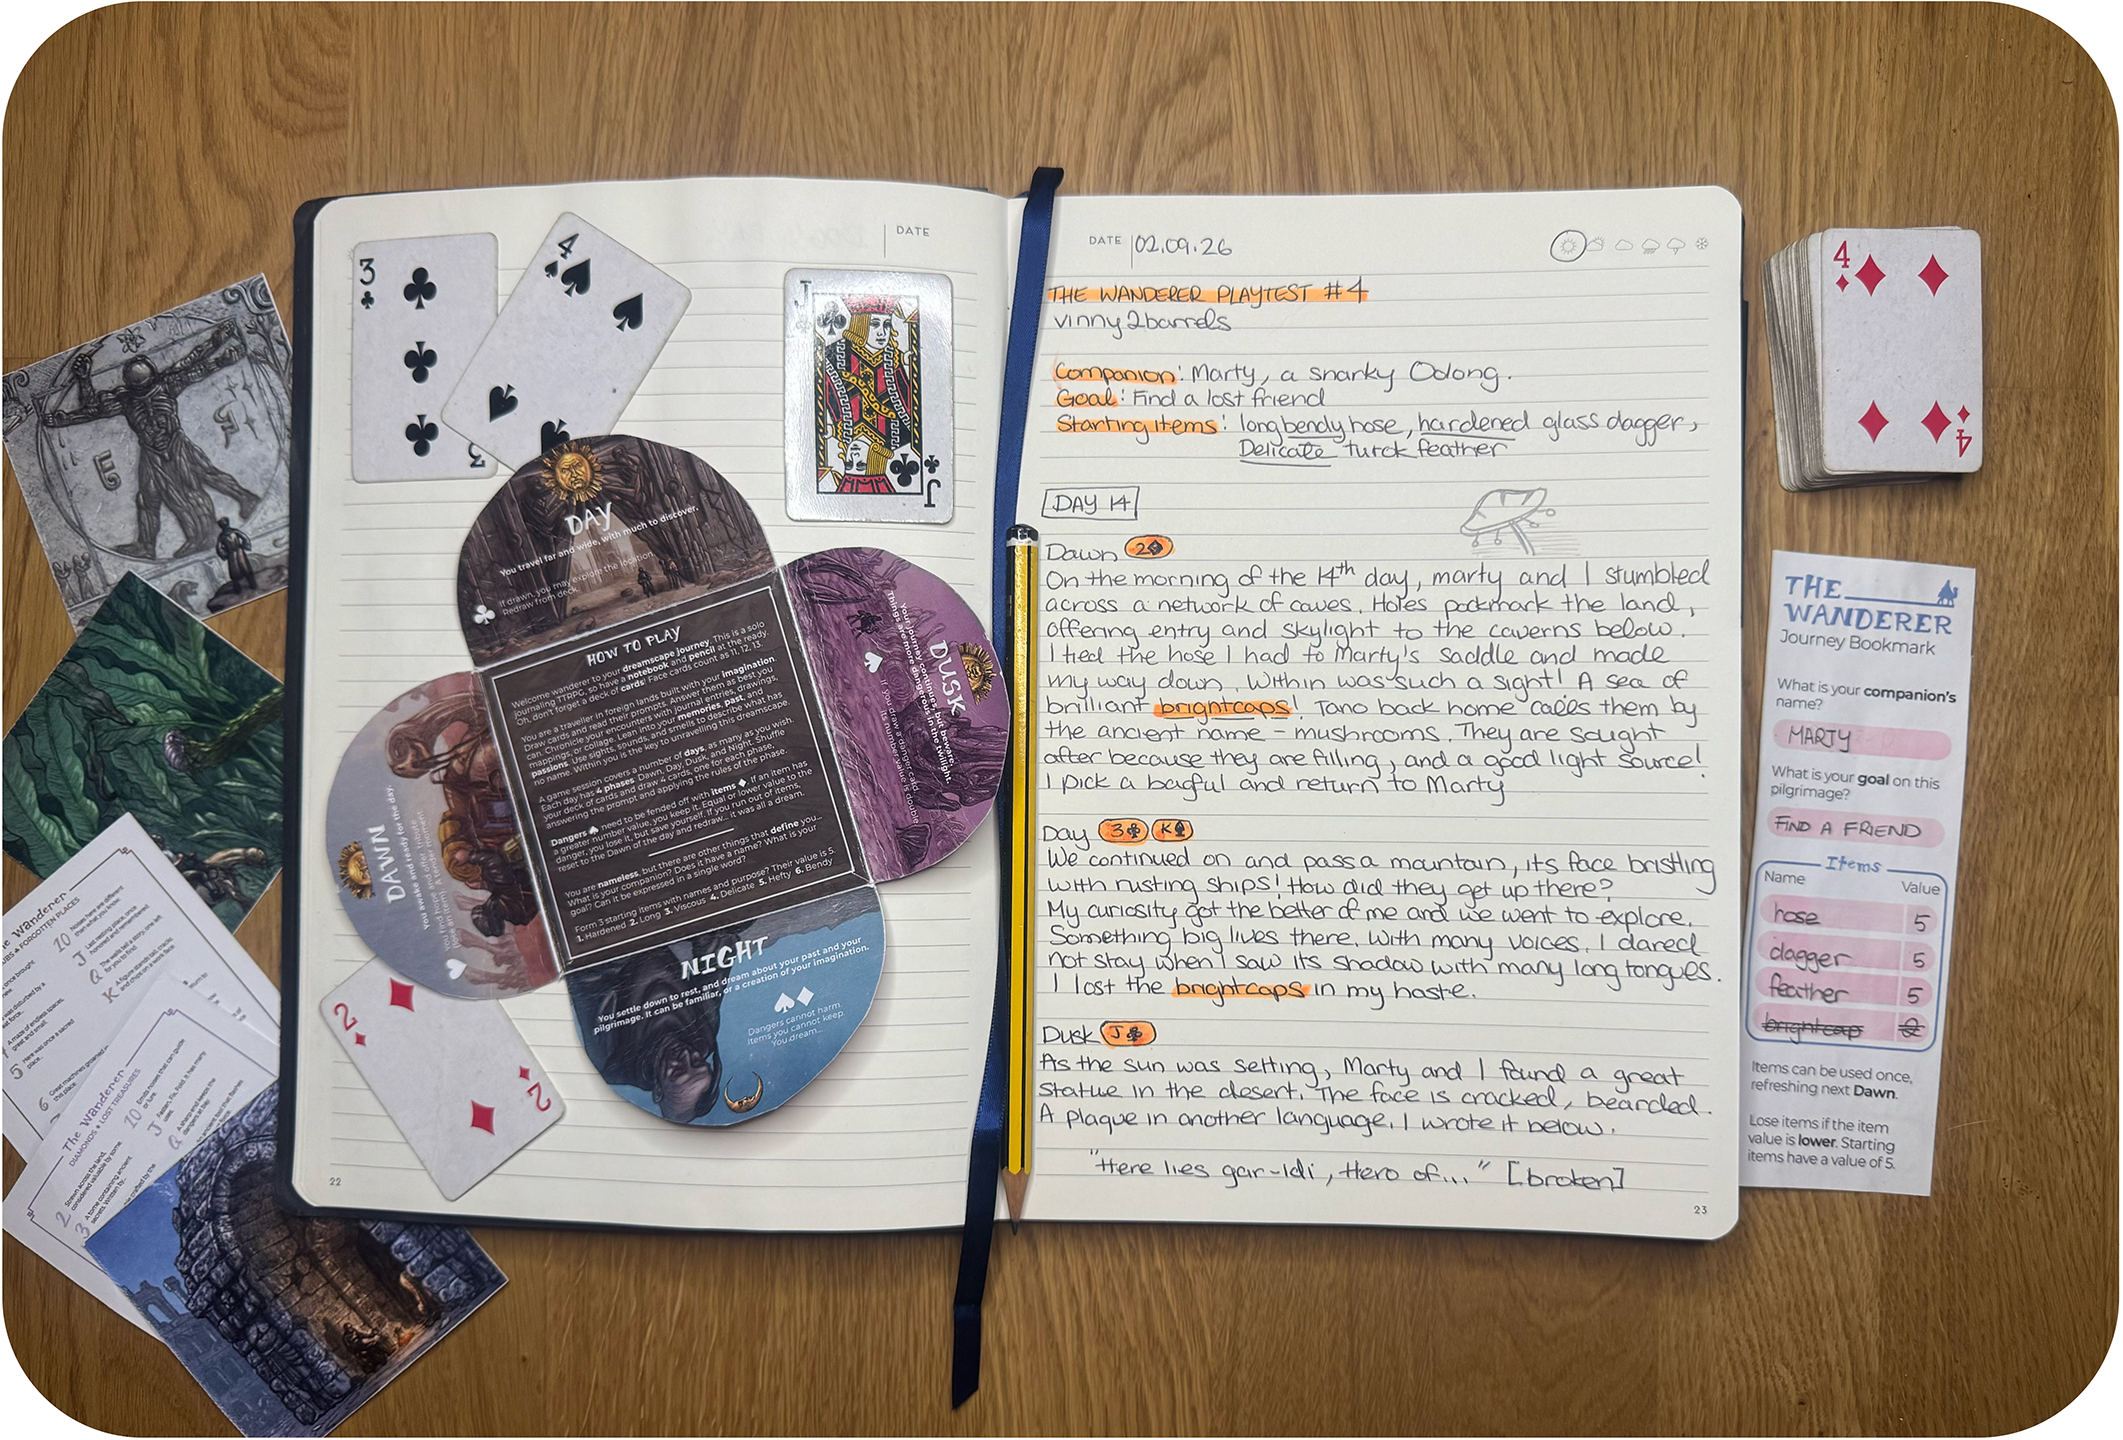 3
3
4
J
J
DATE
DAY
You travel far and wide, with much to discover.
If drawn, you may explore the location.
Redraw from deck.
DUSK
Your journey continues, but beware.
Things are more dangerous in the twilight.
If you draw a danger card,
its number value is double
HOW TO PLAY
Welcome wanderer to your dreamscape journey. This is a solo
journaling TTRPG, so have a notebook and pencil at the ready.
Oh, don't forget a deck of cards! Face cards count as 11, 12, 13.
You are a traveller in foreign lands built with your imagination.
Draw cards and read their prompts. Answer them as best you
can. Chronicle your encounters with journal entries, drawings,
mappings, or collage. Lean into your memories, past, and
passions. Use sights, sounds, and smells to describe what has
no name. Within you is the key to unravelling this dreamscape.
A game session covers a number of days, as many as you wish.
Each day has 4 phases: Dawn, Day, Dusk, and Night. Shuffle
your deck of cards and draw 4 cards, one for each phase,
answering the prompt and applying the rules of the phase.
Dangers ♠ need to be fended off with items ♦. If an item has
a greater number value, you keep it. Equal or lower value to the
danger, you lose it, but save yourself. If you run out of items,
reset to the Dawn of the day and redraw... it was all a dream.
You are nameless, but there are other things that define you...
What is your companion? Does it have a name? What is your
goal? Can it be expressed in a single word?
Form 3 starting items with names and purpose? Their value is 5.
1. Hardened 2. Long 3. Viscous 4. Delicate 5. Hefty 6. Bendy
DAWN
You awake and ready for the day.
NIGHT
You settle down to rest, and dream about your past and your
pilgrimage. It can be familiar, or a creation of your imagination.
Dangers cannot harm.
Items you cannot keep.
You dream...
2
2
22
DATE 02.09.26
THE WANDERER PLAYTEST #4
vinny2barrels
Companion: Marty, a snarky Oolong.
Goal: Find a lost friend
Starting items: long bendy hose, hardened glass dagger,
Delicate turck feather
DAY 14
Dawn 2♦
On the morning of the 14th day, marty and I stumbled
across a network of caves. Holes pockmark the land,
offering entry and skylight to the caverns below.
I tied the hose I had to Marty's saddle and made
my way down. Within was such a sight! A sea of
brilliant brightcaps! Tano back home calls them by
the ancient name - mushrooms. They are sought
after because they are filling, and a good light source!
I pick a bagful and return to Marty
Day 3♣ K♠
We continued on and pass a mountain, its face bristling
with rusting ships! How did they get up there?
My curiosity got the better of me and we went to explore.
Something big lives there. With many voices. I dared
not stay when I saw its shadow with many long tongues.
I lost the brightcaps in my haste.
Dusk J♣
As the sun was setting, Marty and I found a great
statue in the desert. The face is cracked, bearded.
A plaque in another language. I wrote it below.
"Here lies gar-idi, Hero of..." [broken]
23
4
4
THE
WANDERER
Journey Bookmark
What is your companion's
name?
MARTY
What is your goal on this
pilgrimage?
FIND A FRIEND
Items
Name Value
hose 5
dagger 5
feather 5
brightcap 2
Items can be used once,
refreshing next Dawn.
Lose items if the item
value is lower. Starting
items have a value of 5.
The Wanderer
FORGOTTEN PLACES
10
J
Q
K
5
6
The Wanderer
DIAMONDS ♦ LOST TREASURES
10
J
Q
2
3